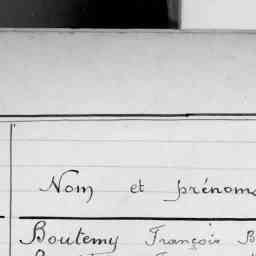 Nom et prénoms
Boutemy François B